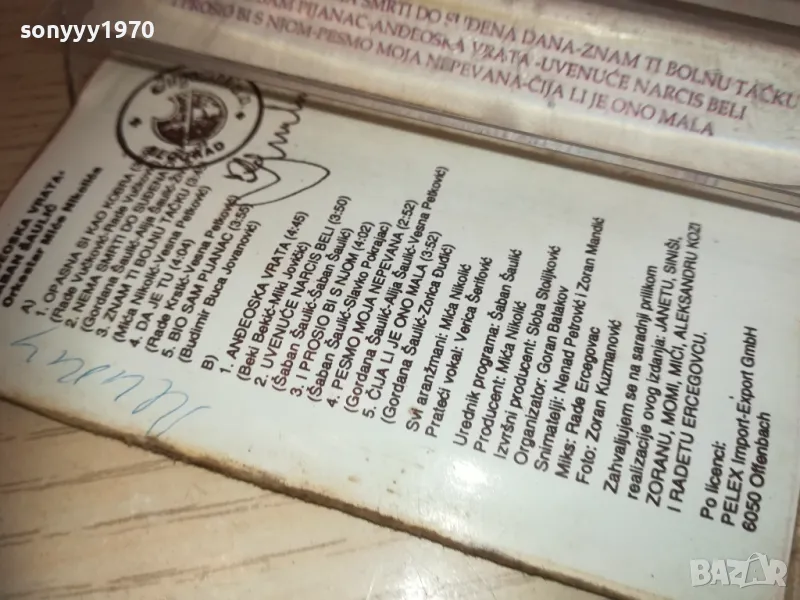 sonyyy1970
SMRTI DO SUĐENA DANA-ZNAM TI BOLNU TAČKU
PIJANAC-ANĐEOSKA VRATA-UVENUĆE NARCIS BELI
I PROSIO BI S NJOM-PESMO MOJA NEPEVANA-ČIJA LI JE ONO MALA
BEOGRAD
VRATA-
ŠAULIĆ
Orkestar Miće Nikolića
A)
1. OPASNA SI KAO KOBRA
(Rade Vučković-Rade Vučković)
2. NEMA SMRTI DO SUĐENA
(Gordana Šaulić-Alja Šaulić-Vesna Petković)
3. ZNAM TI BOLNU TAČKU
(Mića Nikolić-Vesna Petković)
4. DA JE TU (4:04)
(Rade Krstić-Vesna Petković)
5. BIO SAM PIJANAC (3:55)
(Budimir Buca Jovanović)
B)
1. ANĐEOSKA VRATA (4:45)
(Beki Bekić-Miki Jovičić)
2. UVENUĆE NARCIS BELI (3:50)
(Šaban Šaulić-Šaban Šaulić)
3. I PROSIO BI S NJOM (4:02)
(Šaban Šaulić-Slavko Pokrajac)
4. PESMO MOJA NEPEVANA (2:52)
(Gordana Šaulić-Alja Šaulić-Vesna Petković)
5. ČIJA LI JE ONO MALA (3:52)
(Gordana Šaulić-Zorica Đudić)
Svi aranžmani: Mića Nikolić
Prateći vokal: Verica Šerifović
Urednik programa: Šaban Šaulić
Producent: Mića Nikolić
Izvršni producent: Sloba Stoiljković
Organizator: Goran Balakov
Snimatelji: Nenad Petrović i Zoran Mandić
Miks: Rade Ercegovac
Foto: Zoran Kuzmanović
Zahvaljujem se na saradnji prilikom
realizacije ovog izdanja: JANETU, SINIŠI,
ZORANU, MOMI, MIĆI, ALEKSANDRU KOZI
I RADETU ERCEGOVCU.
Po licenci:
PELEX Import-Export GmbH
6050 Offenbach
BAZAR